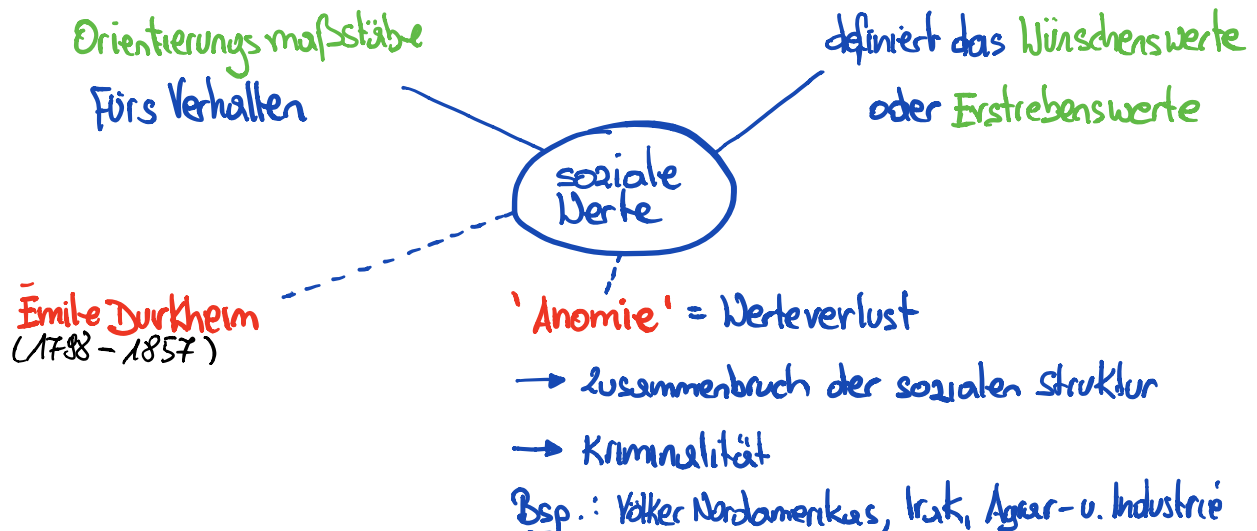 Orientierungsmaßstäbe
fürs Verhalten
definiert das Wünschenswerte
oder Erstrebenswerte
soziale
Werte
Émile Durkheim
(1798 - 1857)
'Anomie' = Werteverlust
→ Zusammenbruch der sozialen Struktur
→ Kriminalität
Bsp.: Völker Nordamerikas, Irak, Agrar- u. Industrie